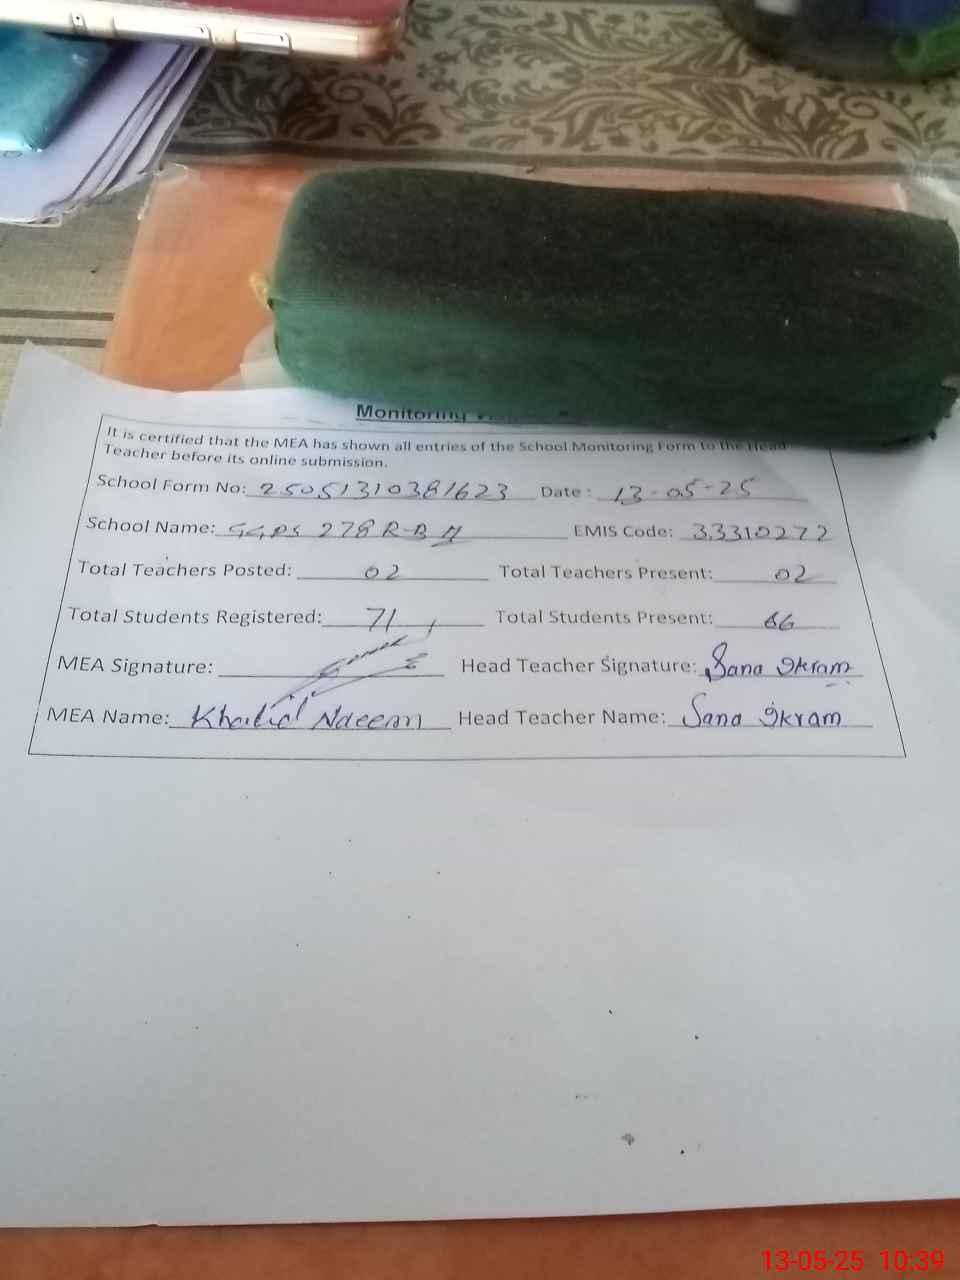 Monitoring
It is certified that the MEA has shown all entries of the School Monitoring Form to the Head
Teacher before its online submission.
School Form No: 25051310381623 Date: 13-05-25
School Name: GGPS 278 R-B II EMIS Code: 33310272
Total Teachers Posted: 02 Total Teachers Present: 02
Total Students Registered: 71 Total Students Present: 66
MEA Signature: Head Teacher Signature: Sana Ikram
MEA Name: Khalid Naeem Head Teacher Name: Sana Ikram
13-05-25 10:39